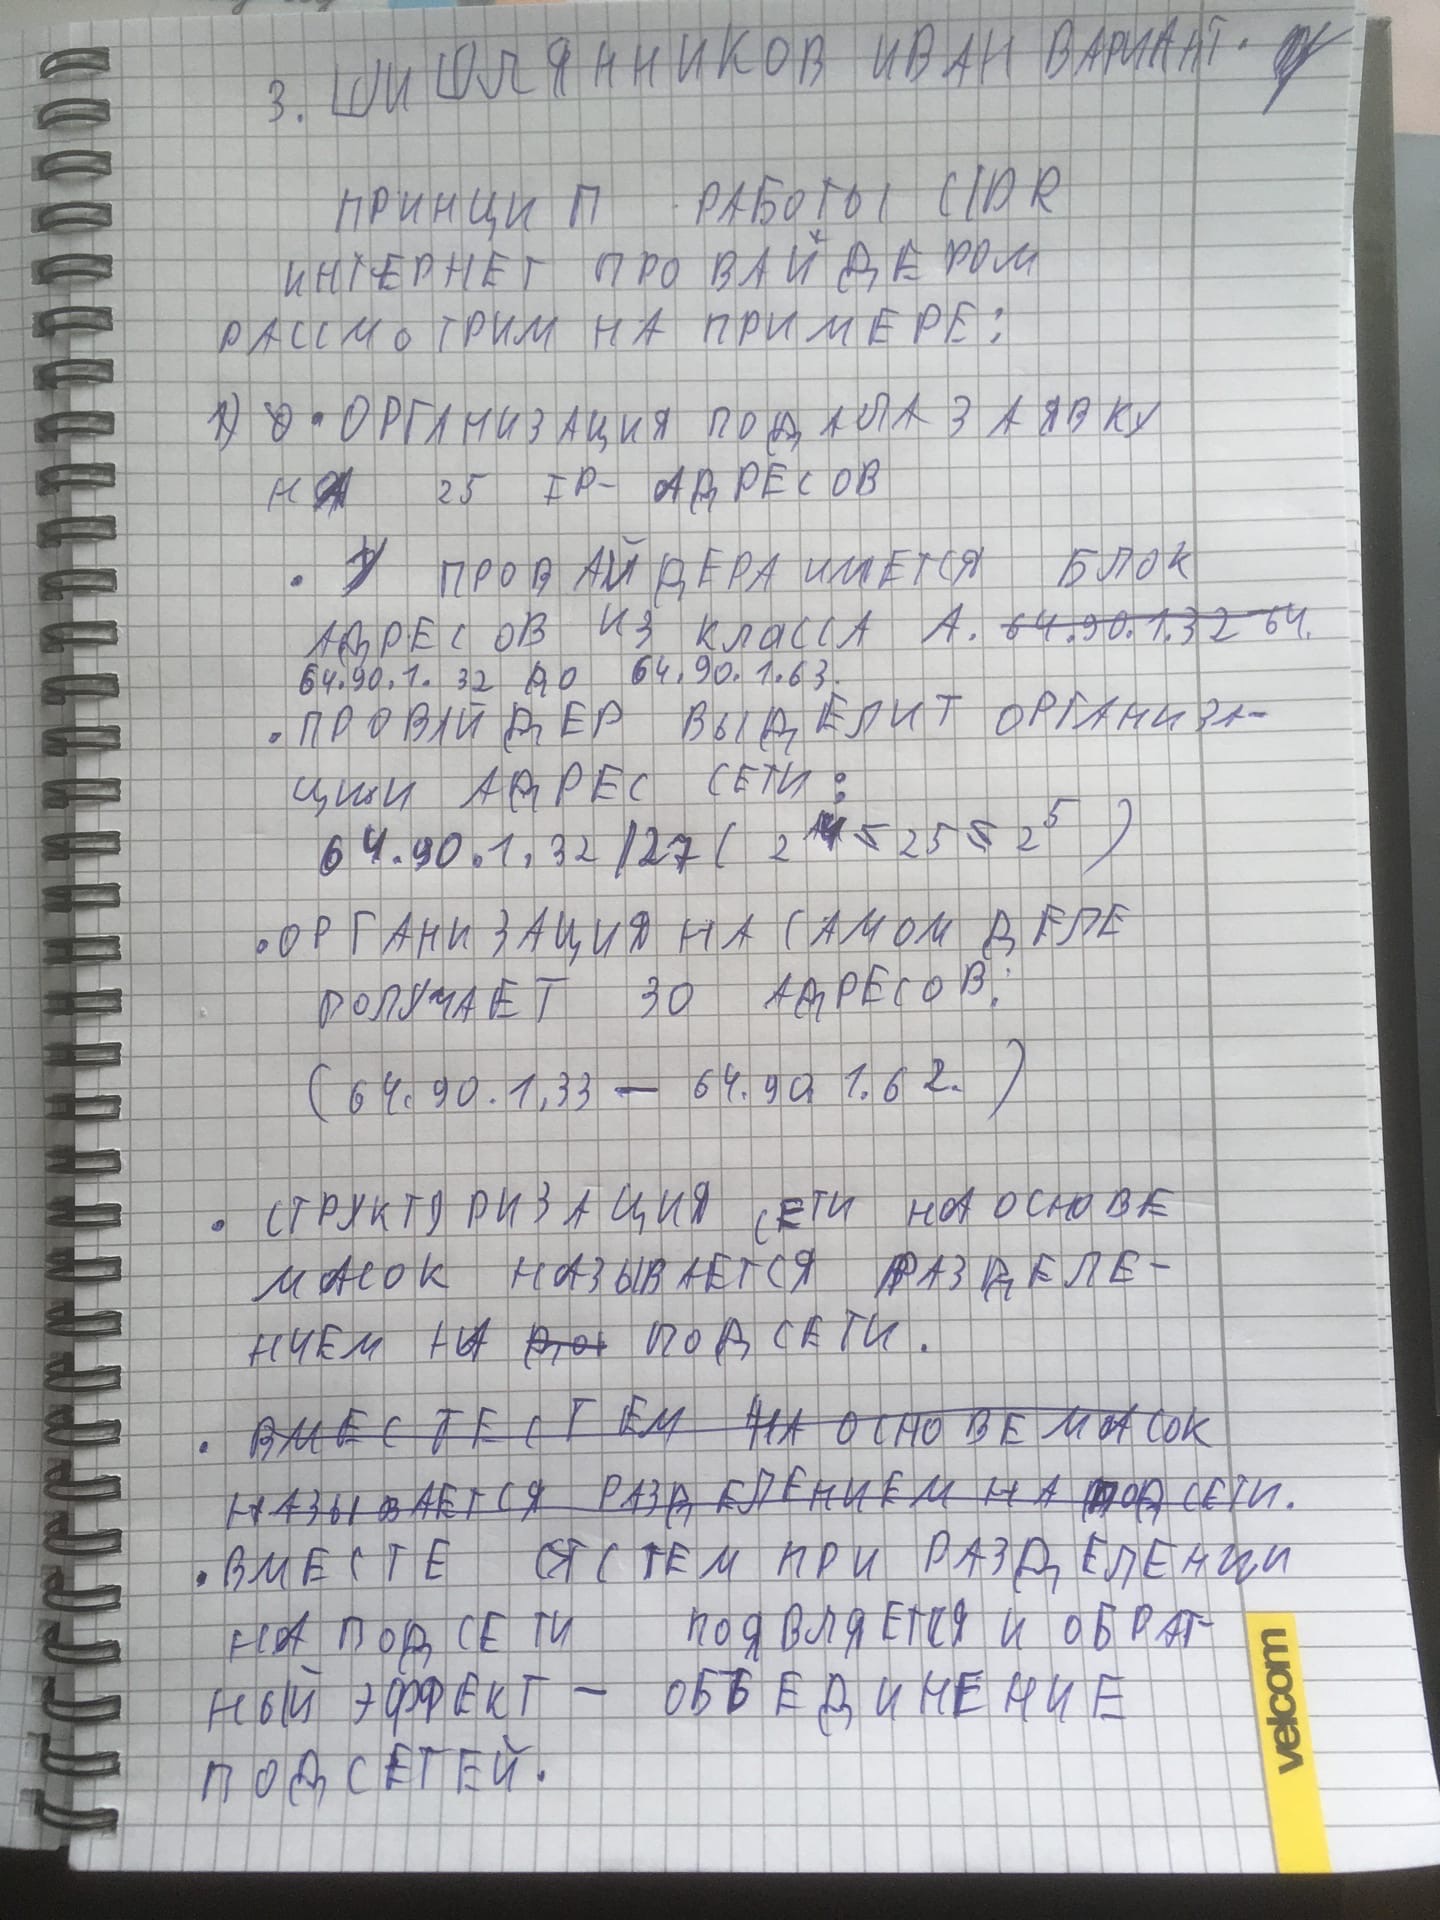 3. ШИШЛЯННИКОВ ИВАН ВАРИАНТ.
ПРИНЦИП РАБОТЫ CIDR
ИНТЕРНЕТ ПРОВАЙДЕРОМ
РАССМОТРИМ НА ПРИМЕРЕ:
1) • ОРГАНИЗАЦИЯ ПОДАЛА ЗАЯВКУ
НА 25 IP-АДРЕСОВ
• У ПРОВАЙДЕРА ИМЕТСЯ БЛОК
АДРЕСОВ ИЗ КЛАССА А. 64.90.1.32 64.
64.90.1.32 ДО 64.90.1.63.
• ПРОВАЙДЕР ВЫДЕЛИТ ОРГАНИЗА-
ЦИИ АДРЕС СЕТИ:
64.90.1.32/27 ( 2⁴ ≤ 25 ≤ 2⁵ )
• ОРГАНИЗАЦИЯ НА САМОМ ДЕЛЕ
ПОЛУЧАЕТ 30 АДРЕСОВ:
(64.90.1.33 — 64.90.1.62.)
• СТРУКТУРИЗАЦИЯ СЕТИ НА ОСНОВЕ
МАСОК НАЗЫВАЕТСЯ РАЗДЕЛЕ-
НИЕМ НА ПОДСЕТИ.
• ВМЕСТЕ С ТЕМ НА ОСНОВЕ МАСОК
НАЗЫВАЕТСЯ РАЗДЕЛЕНИЕМ НА ПОДСЕТИ.
• ВМЕСТЕ С ТЕМ ПРИ РАЗДЕЛЕНИИ
НА ПОДСЕТИ ПОЯВЛЯЕТСЯ И ОБРАТ-
НЫЙ ЭФФЕКТ — ОБЪЕДИНЕНИЕ
ПОДСЕТЕЙ.
velcom